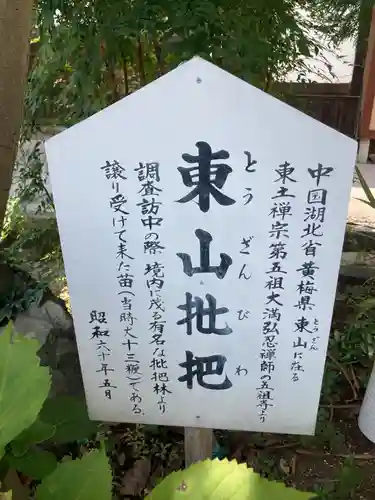 中国湖北省黄梅県東山に在る
とうざん
東土禅宗第五祖大満弘忍禅師の五祖寺より
とうざんびわ
東山枇杷
調査訪中の際境内に茂る有名な枇杷林より
譲り受けて来た苗(当時大十三糎)である。
昭和六十年五月